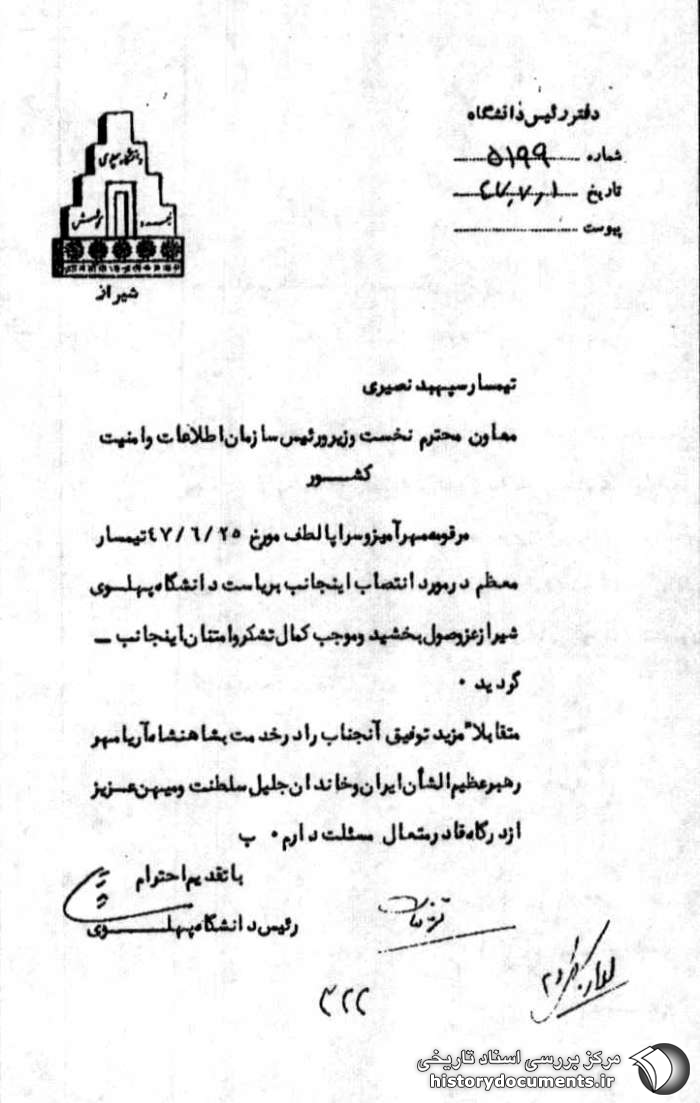 دفتر رئیس دانشگاه
شماره ۵۱۹۹
تاریخ ۴۷,۷,۱
پیوست
شیراز
تیمسار سپهبد نصیری
معاون محترم نخست وزیر و رئیس سازمان اطلاعات و امنیت
کشور
مرقومه مهرآمیز و سراپا لطف مورخ ۴۷/۶/۲۵ تیمسار
معظم در مورد انتصاب اینجانب بریاست دانشگاه پهلوی
شیراز عز وصول بخشید و موجب کمال تشکر و امتنان اینجانب ـ
گردید ۰
متقابلاً مزید توفیق آنجناب را در خدمت بشاهنشاه آریامهر
رهبر عظیم الشأن ایران و خاندان جلیل سلطنت و میهن عزیز
از درگاه قادر متعال مسئلت دارم ۰ ب
با تقدیم احترام
رئیس دانشگاه پهلوی
۳۲۲
مرکز بررسی اسناد تاریخی
historydocuments.ir